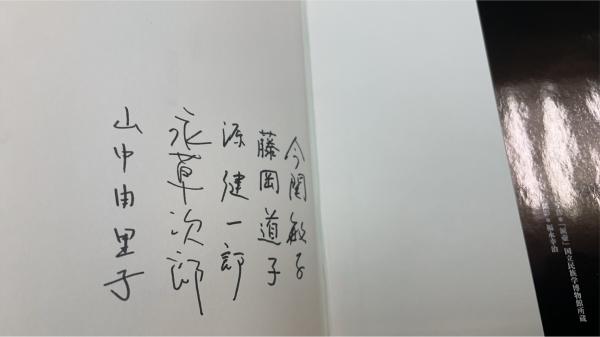 国立民族学博物館所蔵
福永幸治
今関敏子
藤岡道子
源健一郎
永草次郎
山中由里子